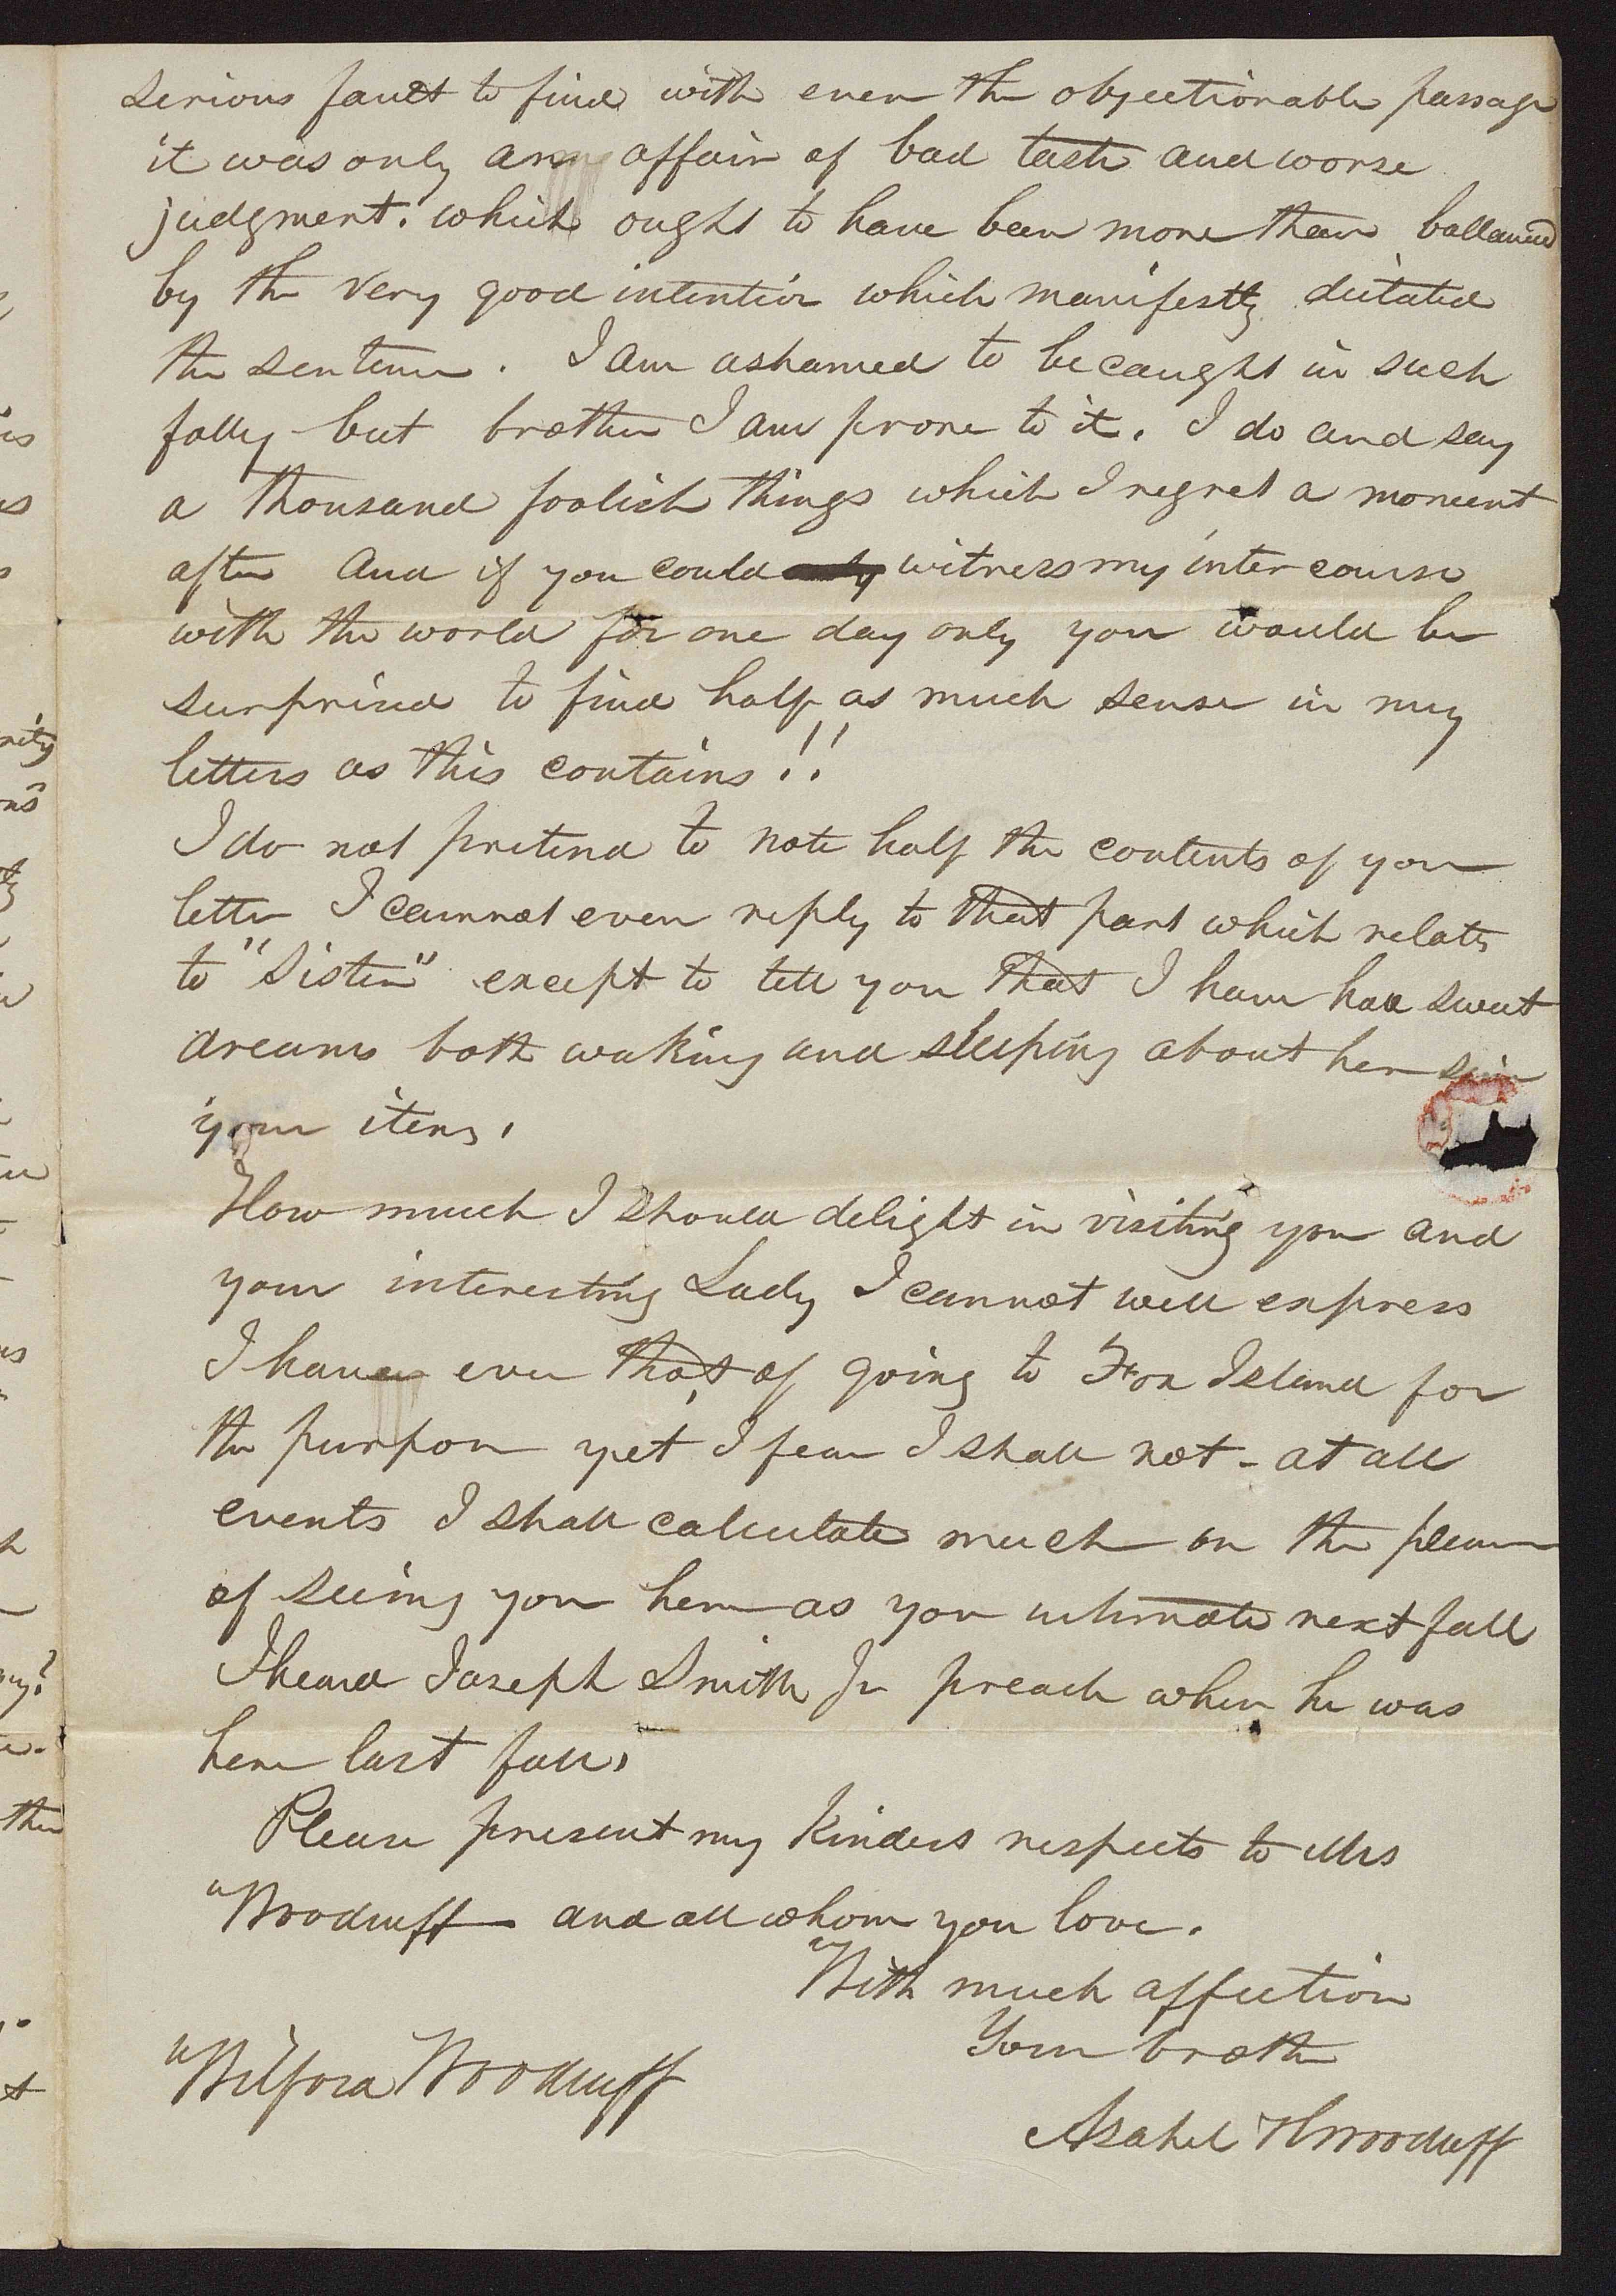 serious fault to find with even the objectionable passage
it was only an affair of bad taste and worse
judgment. which ought to have been more than ballanced
by the very good intention which manifestly dictated
the sentence. I am ashamed to be caught in such
folly but brother I am prone to it. I do and say
a thousand foolish things which I regret a moment
after and if you could only witness my intercourse
with the world for one day only you would be
surprised to find half as much sense in my
letters as this contains!!
I do not pretend to note half the contents of your
letter I cannot even reply to that part which relates
to "Sister" except to tell you that I have had sweet
dreams both waking and sleeping about her since
your item.
How much I should delight in visiting you and
your interesting Lady I cannot well express
I have even thot of going to Fox Island for
the purpose yet I fear I shall not - at all
events I shall calculate much on the pleasure
of seeing you here as you intimate next fall
I heard Joseph Smith Jr preach when he was
here last fall.
Please present my kindest respects to Mrs
Woodruff and all whom you love.
With much affection
Your brother
Wilford Woodruff
Asahel H Woodruff